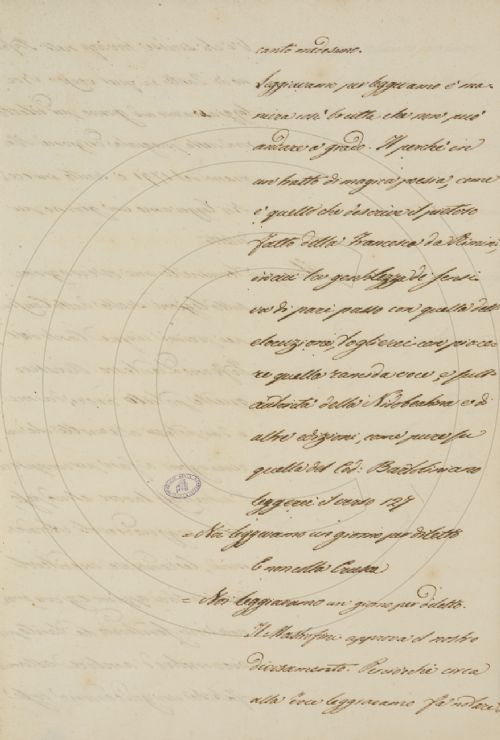 canto medesimo.
Leggiavamo per leggevamo è ma-
niera così brutta che non può
andare a grado. Il perchè in
un tratto di magica poesia, come
è quello che descrive il pietoso
fatto della Francesca da Rimini,
in cui la gentilezza de' sensi
va di pari passo con quella dell'
elocuzione, toglierei con piace-
re quella rancida voce, e sull'
autorità della Nidobeatina e di
altre edizioni, come pure su
quella del Cod: Bartoliniano
leggerei il verso 127
= Noi leggevamo un giorno per diletto
E non colla Crusca
= Noi leggiavamo un giorno per diletto.
Il Mastrofini approva il nostro
divisamento. Perocchè circa
alla voce leggiavamo fa notare